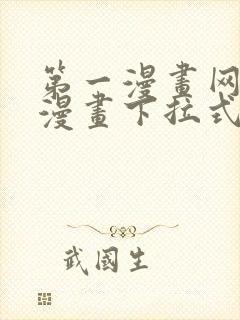 第一漫畫网
漫畫下拉式
武國生